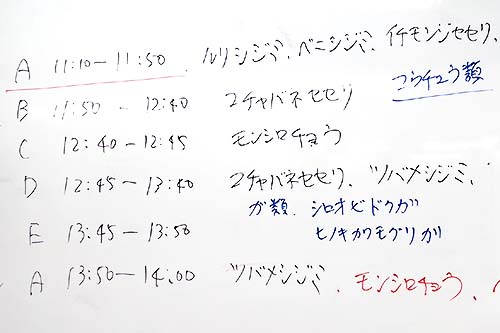 A 11:10－11:50 ルリシジミ、ベニシジミ、イチモンジセセリ、
コウチュウ類
B 11:50 － 12:40 コチャバネセセリ
C 12:40－12:45 モンシロチョウ
D 12:45－13:40 コチャバネセセリ、ツバメシジミ、
ガ類、シロオビドクガ
ヒノキカワモグリガ
E 13:45－13:50
A 13:50－14:00 ツバメシジミ、モンシロチョウ、